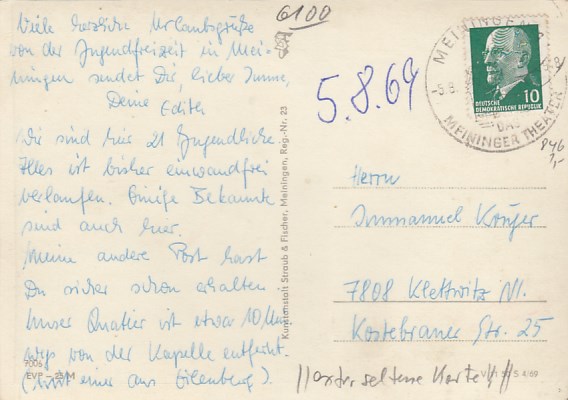 Viele herzliche Urlaubsgrüße
von der Jugendfreizeit in Mei-
ningen sendet Dir, lieber Imme,
Deine Edith
Wir sind hier 21 Jugendliche.
Alles ist bisher einwandfrei
verlaufen. Einige Bekannte
sind auch hier.
Meine andere Post hast
Du sicher schon erhalten.
Unser Quatier ist etwa 10 Min
weg von der Kapelle entfernt.
(mit einer aus Eilenberg).
7006
EVP
6100
5.8.69
Kunstanstalt Straub & Fischer, Meiningen, Reg.-Nr. 23
MEININGEN
-5.8.
MEININGER THEATER
DEUTSCHE
DEMOKRATISCHE REPUBLIK
10
Herrn
Immanuel Krüger
7808 Klettwitz NL.
Kostebrauer Str. 25
4/69
seltene Karte!